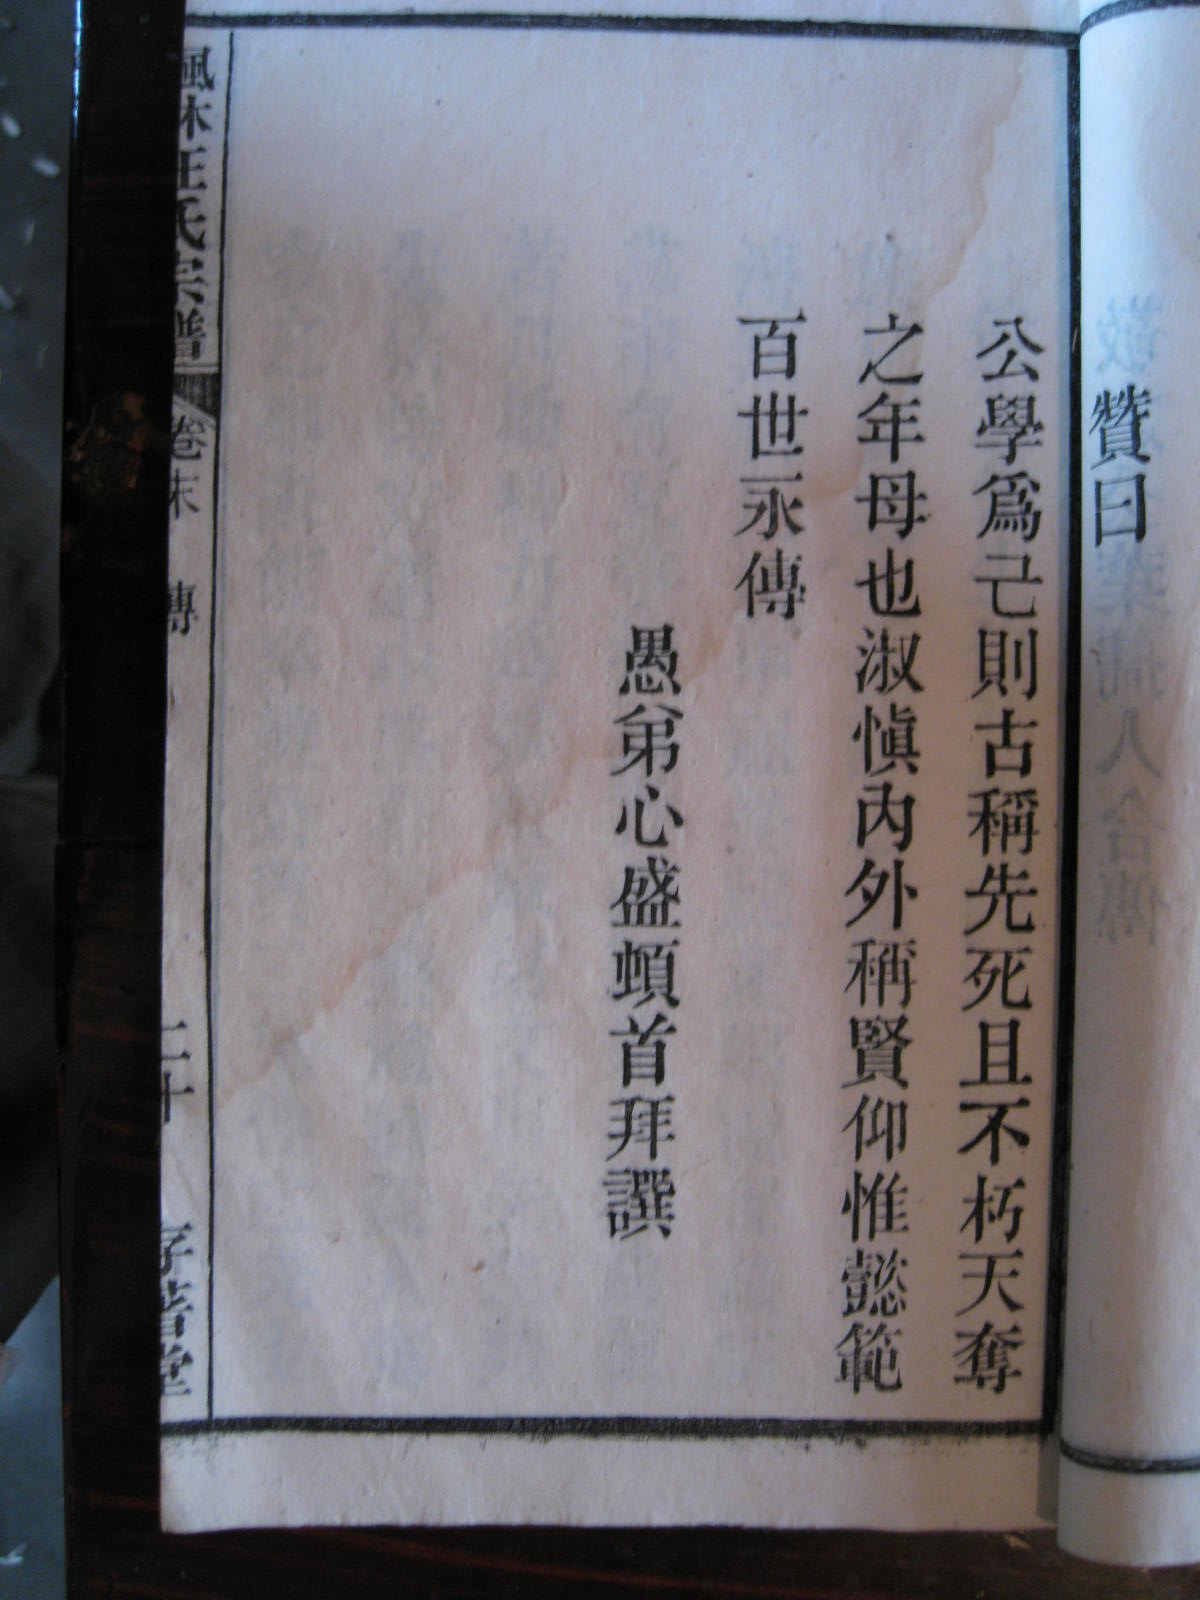 贊曰
公學爲己則古稱先死且不朽天奪
之年母也淑愼內外稱賢仰惟懿範
百世永傳
愚弟心盛頓首拜譔
楓林汪氏宗譜
卷末
傳
二十
存著堂